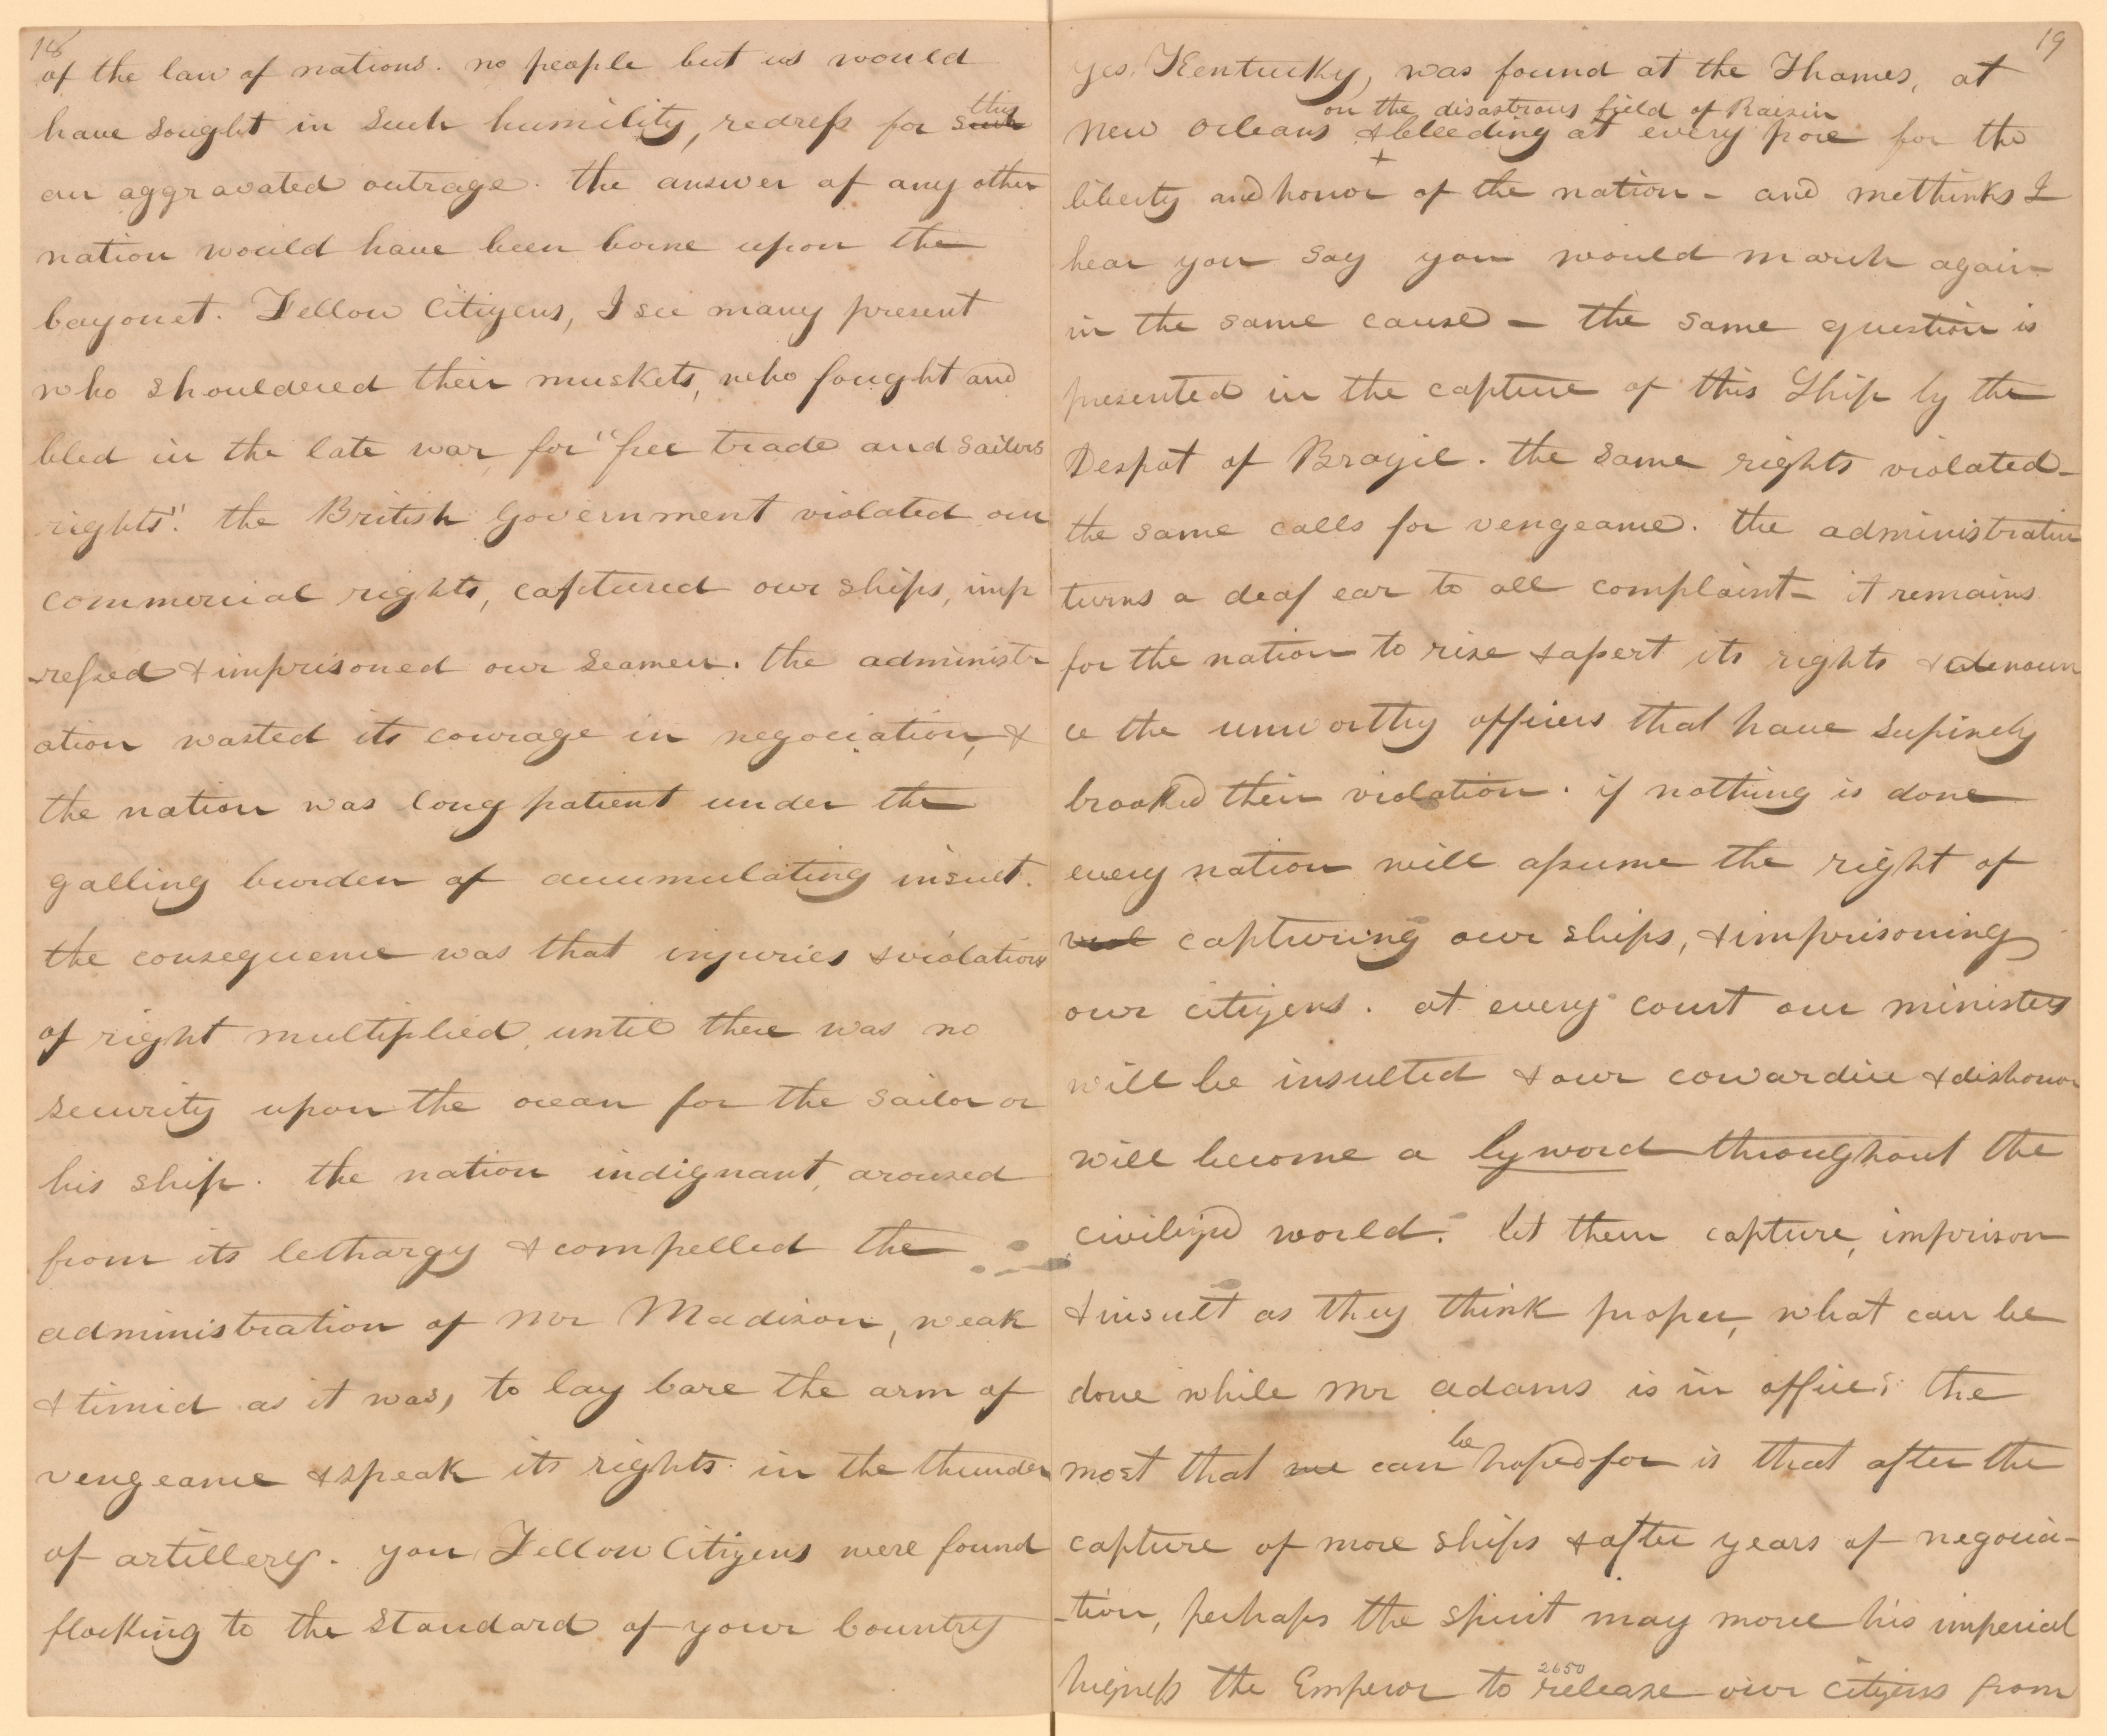 18
of the law of nations. no people but us would
have sought in such humility, redress for such this
an aggravated outrage. the answer of any other
nation would have been borne upon the
bayonet. Fellow Citizens, I see many present
who shouldered their muskets, who fought and
bled in the late war, for "free trade and sailors
rights". the British Government violated our
commercial rights, captured our ships, imp
-ressed & imprisoned our seamen. the administr
ation wasted its courage in negociation, &
the nation was long patient under the
galling burden of accumulating insult.
the consequence was that injuries & violations
of right multiplied, until there was no
security upon the ocean for the sailor or
his ship. the nation indignant, aroused
from its lethargy & compelled the
administration of Mr Madison, weak
& timid as it was, to lay bare the arm of
vengeance & speak its rights in the thunder
of artillery. you Fellow Citizens were found
flocking to the standard of your Country
19
yes, Kentucky, was found at the Thames, at
on the disastrous field of Raisin
New Orleans & bleeding at every pore for the
+
liberty and honor of the nation - and methinks I
hear you say you would march again
in the same cause - the same question is
presented in the capture of this Ship by the
Despot of Brazil. the same rights violated -
the same calls for vengeance. the administration
turns a deaf ear to all complaint - it remains
for the nation to rise & assert its rights & denoun
ce the unworthy officers that have supinely
brooked their violation. if nothing is done
every nation will assume the right of
capturing our ships, & imprisoning
our citizens. at every court our ministers
will be insulted & our cowardice & dishonor
will become a byword throughout the
civilized world. let them capture, imprison
& insult as they think proper, what can be
done while Mr adams is in office; the
be
most that we can hoped for is that after the
capture of more ships & after years of negocia-
-tion, perhaps the spirit may move his imperial
higness the Emperor to release our citizens from
2650